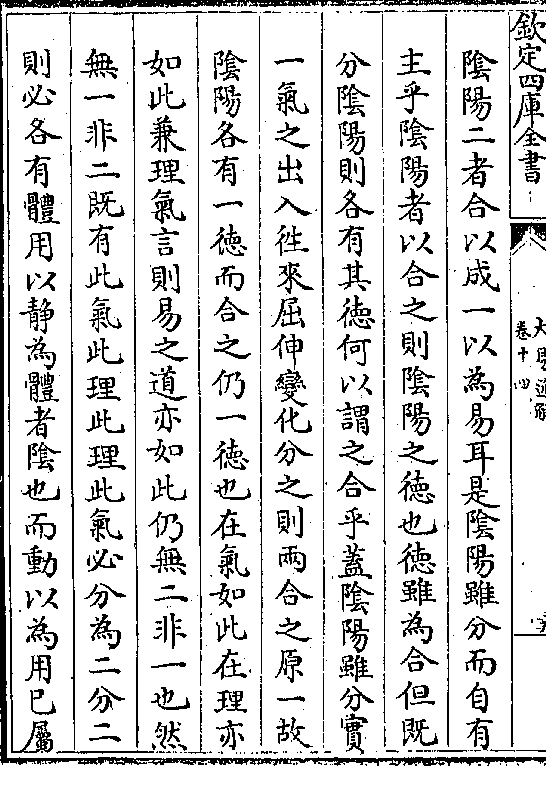 欽定四庫全書
卷十四
陰陽二者合以成一以為易耳是陰陽雖分而自有
主乎陰陽者以合之則陰陽之德也德雖為合但既
分陰陽則各有其德何以謂之合乎蓋陰陽雖分實
一氣之出入徃來屈伸變化分之則兩合之原一故
陰陽各有一德而合之仍一德也在氣如此在理亦
如此兼理氣言則易之道亦如此仍無二非一也然
無一非二既有此氣此理此理此氣必分為二分二
則必各有體用以静為體者陰也而動以為用已屬